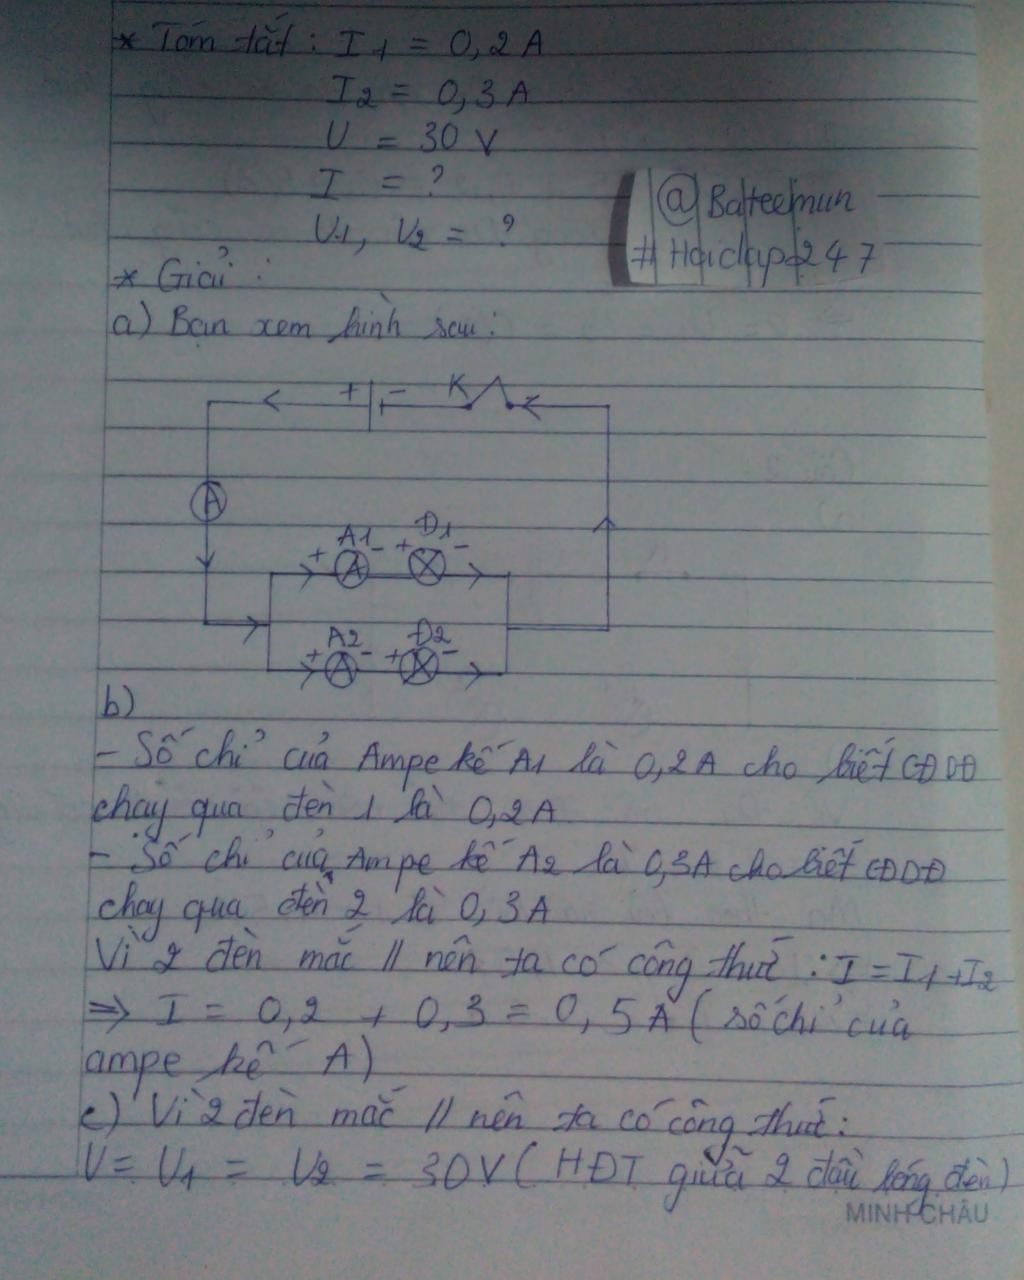 * Tóm tắt : I1 = 0,2A
I2 = 0,3A
U = 30 V
I = ?
U1, U2 = ?
@Bateemun
#Hoidap247
* Giải :
a) Bạn xem hình sau:
+ - K
A
A1 Đ1
+ A - + -
A2 Đ2
+ A - + -
b)
- Số chỉ của Ampe kế A1 là 0,2A cho biết CĐDĐ
chạy qua đèn 1 là 0,2A
- Số chỉ của Ampe kế A2 là 0,3A cho biết CĐDĐ
chạy qua đèn 2 là 0,3A
Vì 2 đèn mắc // nên ta có công thức : I = I1 + I2
=> I = 0,2 + 0,3 = 0,5A ( số chỉ của
ampe kế A)
c) Vì 2 đèn mắc // nên ta có công thức:
U = U1 = U2 = 30V ( HĐT giữa 2 đầu bóng đèn)
MINH CHÂU